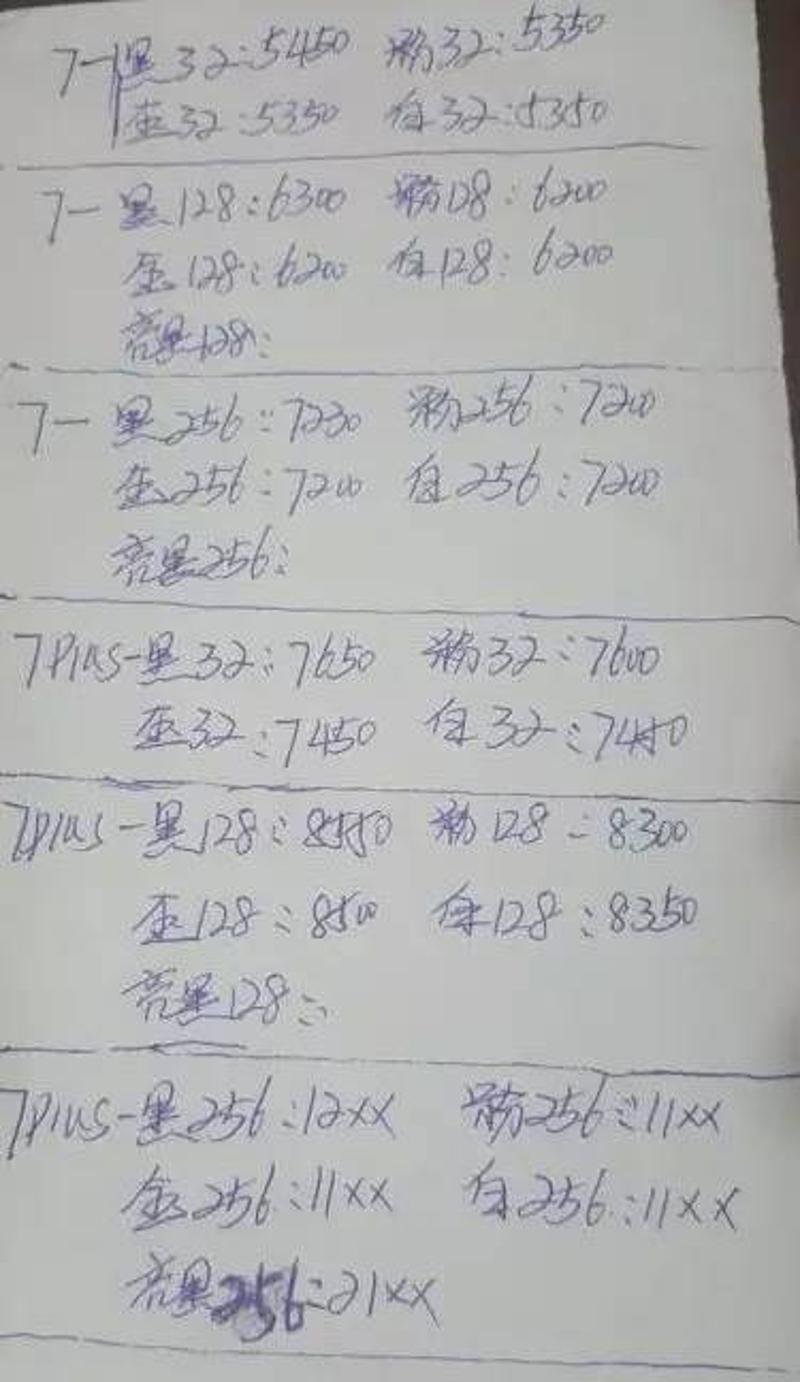 7-黑32:5450 粉32:5350
金32:5350 白32:5350
7-黑128:6300 粉128:6200
金128:6200 白128:6200
亮黑128:
7-黑256:7230 粉256:7200
金256:7200 白256:7200
亮黑256:
7Plus-黑32:7650 粉32:7600
金32:7450 白32:7450
7Plus-黑128:8550 粉128:8300
金128:8500 白128:8350
亮黑128:
7Plus-黑256:12XX 粉256:11XX
金256:11XX 白256:11XX
亮黑256:21XX